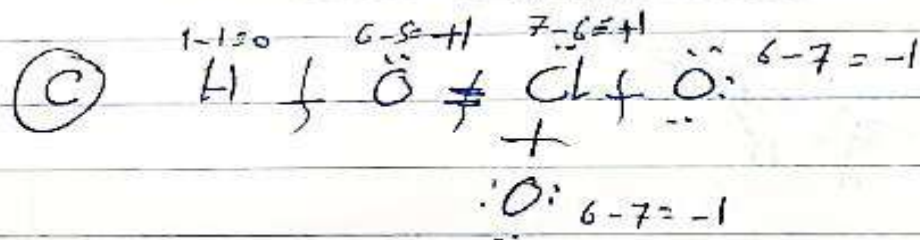 1-1=0 6-5=+1 7-6=+1
C H - Ö = C̈l - Ö: 6-7=-1
:O: 6-7=-1